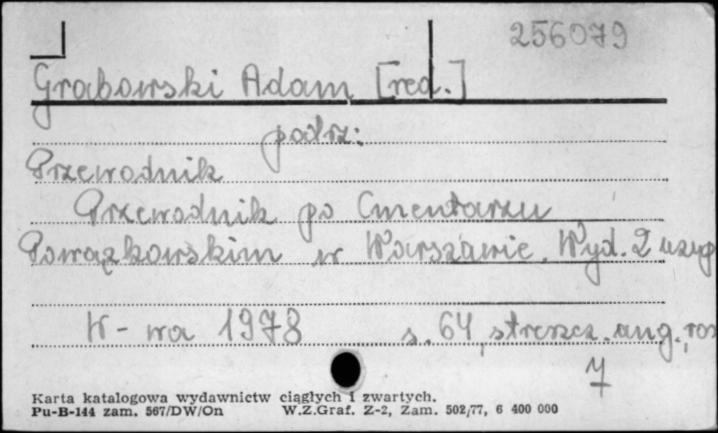 256079
Grabowski Adam [red.]
patrz:
Przewodnik
Przewodnik po Cmentarzu
Powązkowskim w Warszawie. Wyd. 2 uzup
W-wa 1978 s. 64, streszcz. ang., ros
7
Karta katalogowa wydawnictw ciągłych i zwartych.
Pu-B-144 zam. 567/DW/On W.Z.Graf. Z-2, Zam. 502/77, 6 400 000